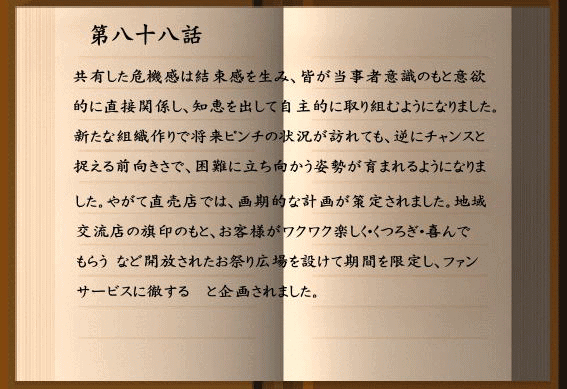 第八十八話
共有した危機感は結束感を生み、皆が当事者意識のもと意欲
的に直接関係し、知恵を出して自主的に取り組むようになりました。
新たな組織作りで将来ピンチの状況が訪れても、逆にチャンスと
捉える前向きさで、困難に立ち向かう姿勢が育まれるようになりま
した。やがて直売店では、画期的な計画が策定されました。地域
交流店の旗印のもと、お客様がワクワク楽しく・くつろぎ・喜んで
もらう など開放されたお祭り広場を設けて期間を限定し、ファン
サービスに徹する　と企画されました。